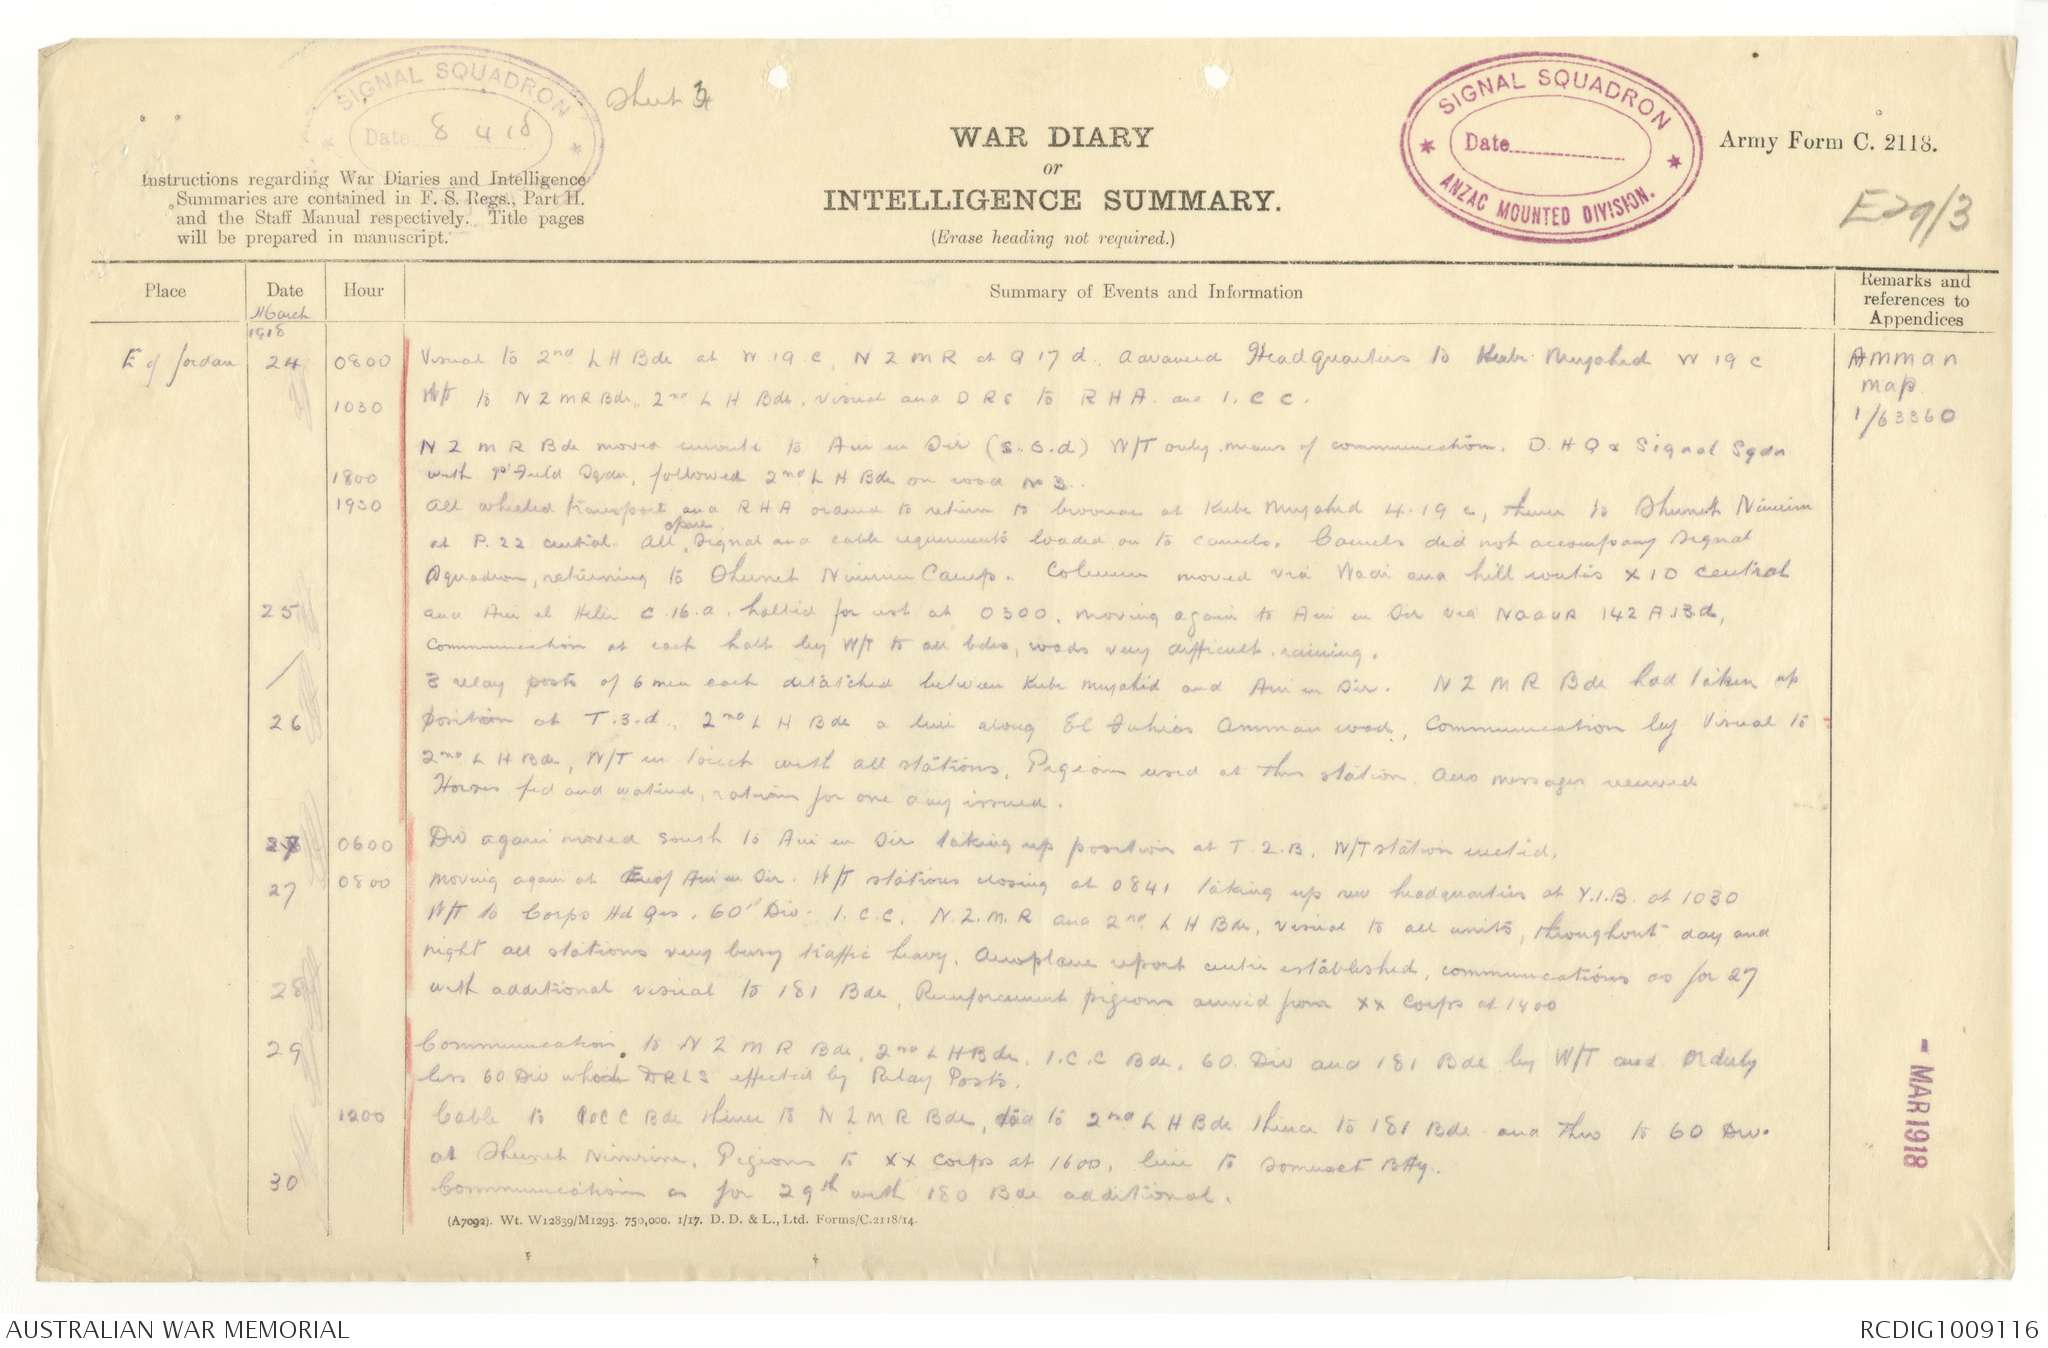 SIGNAL SQUADRON
Date 8 4 18
Sheet 3
WAR DIARY
or
INTELLIGENCE SUMMARY.
(Erase heading not required.)
SIGNAL SQUADRON
Date
ANZAC MOUNTED DIVISION.
Army Form C. 2118.
E29/3
Instructions regarding War Diaries and Intelligence
Summaries are contained in F. S. Regs., Part II.
and the Staff Manual respectively. Title pages
will be prepared in manuscript.
Place
Date
Hour
Summary of Events and Information
Remarks and
references to
Appendices
March
1918
E of Jordan 24 0800 Visual to 2nd L H Bde at W 19 c, N Z M R at Q 17 d. Advanced Headquarters to Kubr Mujahid W 19 c
Amman
map
1/63360
1030 W/T to N Z M R Bde, 2nd L H Bde, visual and D R S to R H A. and I. C C.
N Z M R Bde moved enroute to Ain es Sir (S.S.d) W/T only means of communication. D. H Q & Signal Sqdn
1800 with Field Sqdn, followed 2nd L H Bde on road No 3.
1930 All wheeled transport and R H A ordered to return to bivouac at Kubr Mujahid 4.19 c, thence to Shunet Nimrin
at P. 22 central. All spare Signal and cable requirements loaded on to camels. Camels did not accompany Signal
Squadron, returning to Shunet Nimrin Camp. Column moved via Wadi and hill routes X10 central
25 and Ain el Hekr C.16.a. halted for rest at 0300. moving again to Ain es Sir via NAAUR 142 A.13.d,
communication at each halt by W/T to all bdes, roads very difficult. raining.
3 relay posts of 6 men each detatched between Kubr Mujahid and Ain es Sir. N Z M R Bde had taken up
26 position at T.3.d., 2nd L H Bde a line along El Fuheis Amman road, Communication by Visual to
2nd L H Bde, W/T in touch with all stations, Pigeons used at this station. Aero messages received
Horses fed and watered, rations for one day issued.
27 0600 Div again moved south to Ain es Sir taking up position at T.2.B. W/T station erected.
27 0800 Moving again at E of Ain es Sir. W/T stations closing at 0841 taking up new headquarters at Y.1.B. at 1030
W/T to Corps Hd Qrs. 60th Div. I.C.C. N.Z.M.R and 2nd L H Bde, visual to all units, throughout day and
night all stations very busy traffic heavy. Aeroplane report centre established, communications as for 27
28 with additional visual to 181 Bde, Reinforcement pigeons arrived from XX Corps at 1400
29 Communication to N Z M R Bde, 2nd L H Bde. I.C.C Bde, 60 Div and 181 Bde by W/T and Orderly
less 60 Div which DRLS effected by Relay Posts.
1200 Cable to ICC Bde thence to N Z M R Bde, to 2nd L H Bde thence to 181 Bde and thro to 60 Div.
at Shunet Nimrin. Pigeons to XX Corps at 1600, line to Somerset Bty.
30 Communications as for 29th with 180 Bde additional.
- MAR 1918
(A7092). Wt. W12839/M1293. 750,000. 1/17. D. D. & L., Ltd. Forms/C.2118/14.
AUSTRALIAN WAR MEMORIAL
RCDIG1009116